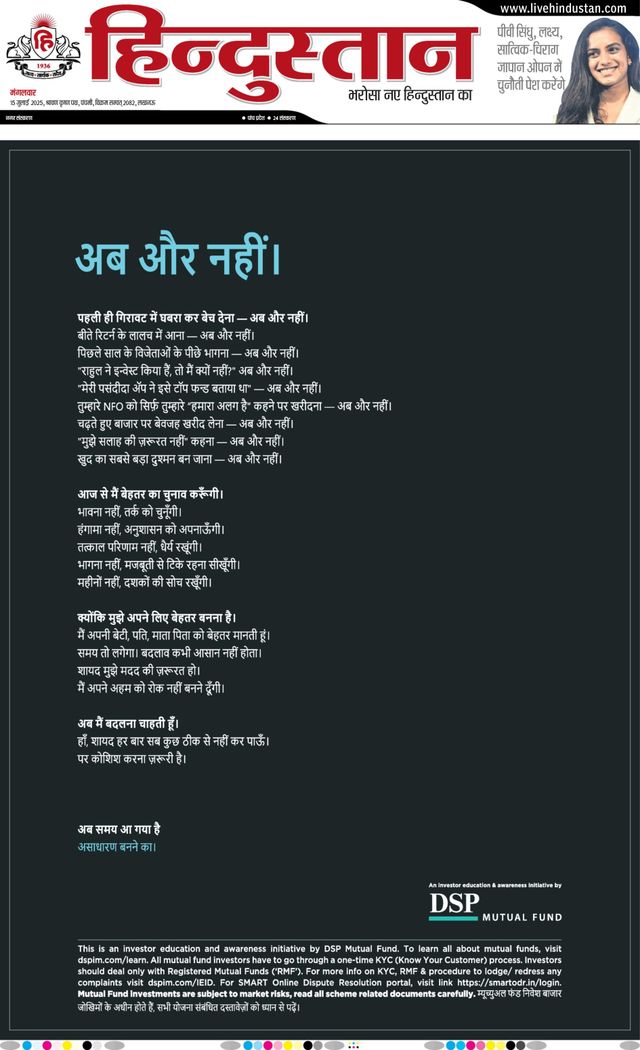 www.livehindustan.com
हि
1936
हिन्दुस्तान
भरोसा नए हिन्दुस्तान का
पीवी सिंधु, लक्ष्य,
सात्विक-चिराग
जापान ओपन में
चुनौती पेश करेंगे
मंगलवार
15 जुलाई 2025, श्रावण कृष्ण पक्ष, पंचमी, विक्रम सम्वत् 2082, लखनऊ
नगर संस्करण
● पांच प्रदेश ● 24 संस्करण
अब और नहीं।
पहली ही गिरावट में घबरा कर बेच देना — अब और नहीं।
बीते रिटर्न के लालच में आना — अब और नहीं।
पिछले साल के विजेताओं के पीछे भागना — अब और नहीं।
"राहुल ने इन्वेस्ट किया हैं, तो मैं क्यों नहीं?" अब और नहीं।
"मेरी पसंदीदा ॲप ने इसे टॉप फन्ड बताया था" — अब और नहीं।
तुम्हारे NFO को सिर्फ़ तुम्हारे "हमारा अलग है" कहने पर खरीदना — अब और नहीं।
चढ़ते हुए बाजार पर बेवजह खरीद लेना — अब और नहीं।
"मुझे सलाह की ज़रूरत नहीं" कहना — अब और नहीं।
खुद का सबसे बड़ा दुश्मन बन जाना — अब और नहीं।
आज से मैं बेहतर का चुनाव करूँगी।
भावना नहीं, तर्क को चुनूँगी।
हंगामा नहीं, अनुशासन को अपनाऊँगी।
तत्काल परिणाम नहीं, धैर्य रखूंगी।
भागना नहीं, मजबूती से टिके रहना सीखूँगी।
महीनों नहीं, दशकों की सोच रखूँगी।
क्योंकि मुझे अपने लिए बेहतर बनना है।
मैं अपनी बेटी, पति, माता पिता को बेहतर मानती हूं।
समय तो लगेगा। बदलाव कभी आसान नहीं होता।
शायद मुझे मदद की ज़रूरत हो।
मैं अपने अहम को रोक नहीं बनने दूँगी।
अब मैं बदलना चाहती हूँ।
हाँ, शायद हर बार सब कुछ ठीक से नहीं कर पाऊँ।
पर कोशिश करना ज़रूरी है।
अब समय आ गया है
असाधारण बनने का।
An investor education & awareness initiative by
DSP
MUTUAL FUND
This is an investor education and awareness initiative by DSP Mutual Fund. To learn all about mutual funds, visit
dspim.com/learn. All mutual fund investors have to go through a one-time KYC (Know Your Customer) process. Investors
should deal only with Registered Mutual Funds ('RMF'). For more info on KYC, RMF & procedure to lodge/ redress any
complaints visit dspim.com/IEID. For SMART Online Dispute Resolution portal, visit link https://smartodr.in/login.
Mutual Fund Investments are subject to market risks, read all scheme related documents carefully. म्यूच्युअल फंड निवेश बाजार
जोखिमों के अधीन होते हैं, सभी योजना संबंधित दस्तावेज़ों को ध्यान से पढ़ें।